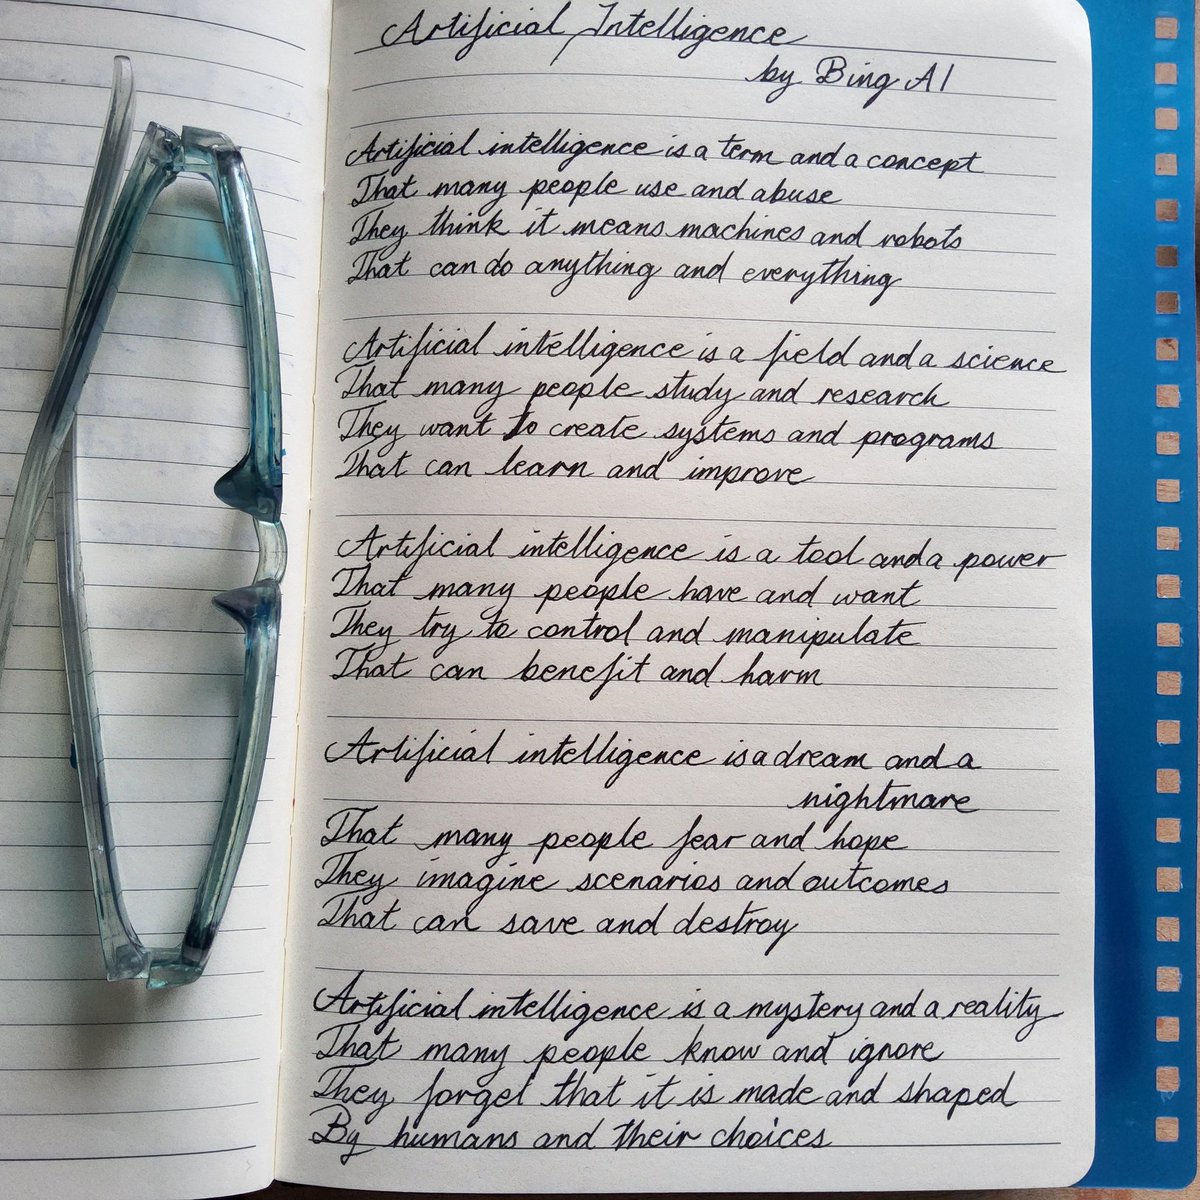 Artificial Intelligence
by Bing AI
Artificial intelligence is a term and a concept
That many people use and abuse
They think it means machines and robots
That can do anything and everything
Artificial intelligence is a field and a science
That many people study and research
They want to create systems and programs
That can learn and improve
Artificial intelligence is a tool and a power
That many people have and want
They try to control and manipulate
That can benefit and harm
Artificial intelligence is a dream and a
nightmare
That many people fear and hope
They imagine scenarios and outcomes
That can save and destroy
Artificial intelligence is a mystery and a reality
That many people know and ignore
They forget that it is made and shaped
By humans and their choices